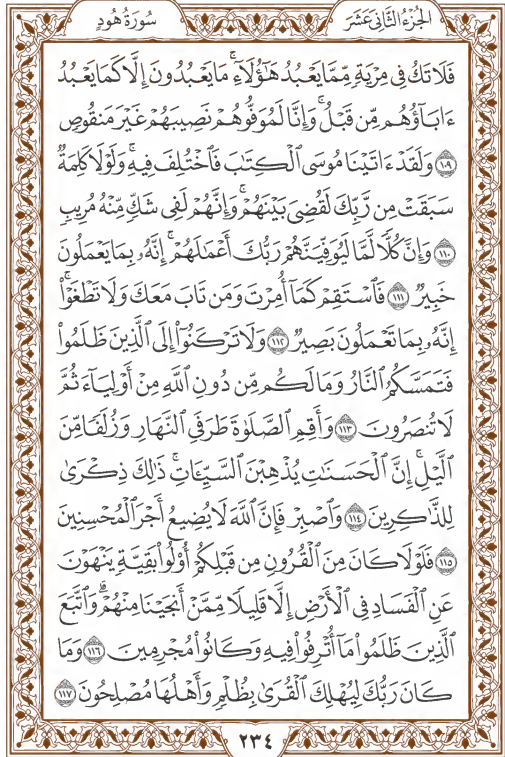 الجُزْءُ الثَّانِي عَشَرَ
سُورَةُ هُودٍ
فَلَا تَكُ فِي مِرْيَةٍ مِّمَّا يَعْبُدُ هَٰٓؤُلَآءِۚ مَا يَعْبُدُونَ إِلَّا كَمَا يَعْبُدُ
ءَابَآؤُهُم مِّن قَبْلُۚ وَإِنَّا لَمُوَفُّوهُمْ نَصِيبَهُمْ غَيْرَ مَنقُوصٍ
١٠٩ وَلَقَدْ ءَاتَيْنَا مُوسَى ٱلْكِتَٰبَ فَٱخْتُلِفَ فِيهِۚ وَلَوْلَا كَلِمَةٌ
سَبَقَتْ مِن رَّبِّكَ لَقُضِىَ بَيْنَهُمْۚ وَإِنَّهُمْ لَفِى شَكٍّ مِّنْهُ مُرِيبٍ
١١٠ وَإِنَّ كُلًّا لَّمَّا لَيُوَفِّيَنَّهُمْ رَبُّكَ أَعْمَٰلَهُمْۚ إِنَّهُۥ بِمَا يَعْمَلُونَ
خَبِيرٌ ١١١ فَٱسْتَقِمْ كَمَآ أُمِرْتَ وَمَن تَابَ مَعَكَ وَلَا تَطْغَوْا۟ۚ
إِنَّهُۥ بِمَا تَعْمَلُونَ بَصِيرٌ ١١٢ وَلَا تَرْكَنُوٓا۟ إِلَى ٱلَّذِينَ ظَلَمُوا۟
فَتَمَسَّكُمُ ٱلنَّارُ وَمَا لَكُم مِّن دُونِ ٱللَّهِ مِنْ أَوْلِيَآءَ ثُمَّ
لَا تُنصَرُونَ ١١٣ وَأَقِمِ ٱلصَّلَوٰةَ طَرَفَىِ ٱلنَّهَارِ وَزُلَفًا مِّنَ
ٱلَّيْلِۚ إِنَّ ٱلْحَسَنَٰتِ يُذْهِبْنَ ٱلسَّيِّـَٔاتِۚ ذَٰلِكَ ذِكْرَىٰ
لِلذَّٰكِرِينَ ١١٤ وَٱصْبِرْ فَإِنَّ ٱللَّهَ لَا يُضِيعُ أَجْرَ ٱلْمُحْسِنِينَ
١١٥ فَلَوْلَا كَانَ مِنَ ٱلْقُرُونِ مِن قَبْلِكُمْ أُو۟لُوا۟ بَقِيَّةٍ يَنْهَوْنَ
عَنِ ٱلْفَسَادِ فِى ٱلْأَرْضِ إِلَّا قَلِيلًا مِّمَّنْ أَنجَيْنَا مِنْهُمْۗ وَٱتَّبَعَ
ٱلَّذِينَ ظَلَمُوا۟ مَآ أُتْرِفُوا۟ فِيهِ وَكَانُوا۟ مُجْرِمِينَ ١١٦ وَمَا
كَانَ رَبُّكَ لِيُهْلِكَ ٱلْقُرَىٰ بِظُلْمٍ وَأَهْلُهَا مُصْلِحُونَ ١١٧
٢٣٤